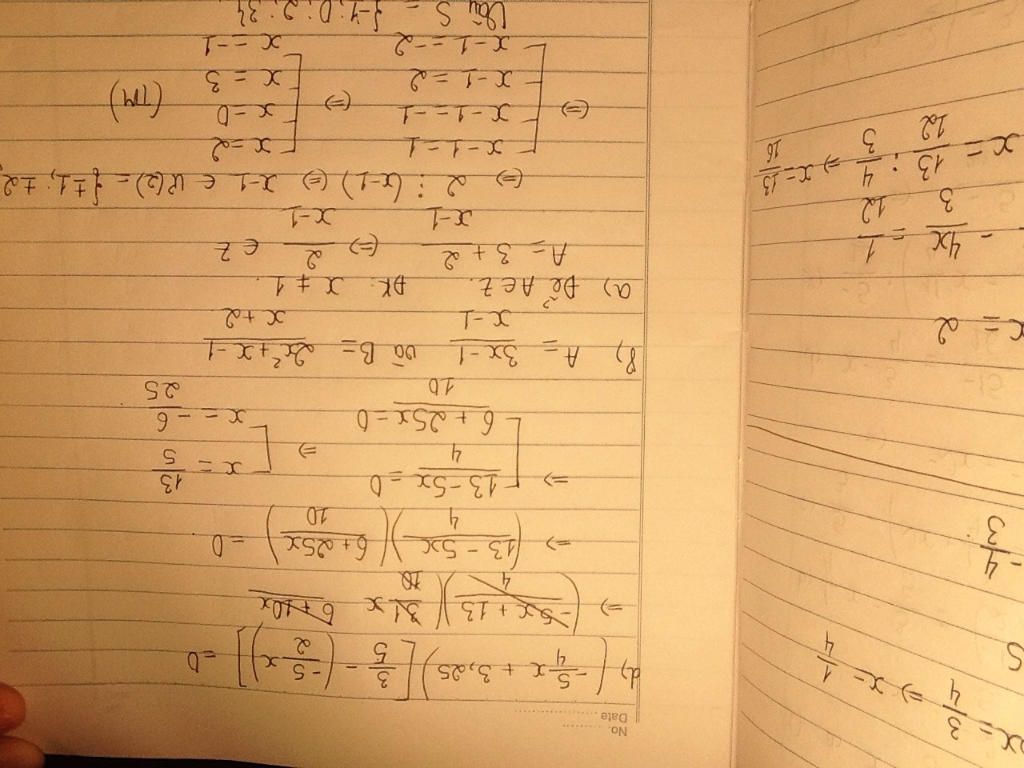 No.
Date
d) (-5/4 x + 3,25) [3/5 - (-5/2 x)] = 0
=> (-5x + 13 / 4) ( 31/10 x 6 + 10x
=> (13 - 5x / 4) (6 + 25x / 10) = 0
=> [ 13 - 5x / 4 = 0 => [ x = 13/5
6 + 25x / 10 = 0 x = -6/25
B) A = 3x - 1 / x - 1 và B = 2x² + x - 1 / x + 2
a) Để A ∈ Z. ĐK: x ≠ 1.
A = 3 + 2 / x - 1 (=) 2 / x - 1 ∈ Z
(=) 2 ⋮ (x - 1) (=) x - 1 ∈ Ư(2) = {±1; ±2
(=) [ x - 1 = 1 (=) [ x = 2 (TM)
x - 1 = -1 x = 0
x - 1 = 2 x = 3
x - 1 = -2 x = -1
Vậy S = {-1; 0; 2; 3}
x = 3/4 => x = 1/4
5
- 4/3
x = 2
- 4x/3 = 1/12
x = 13/12 : 4/3 => x = 13/16